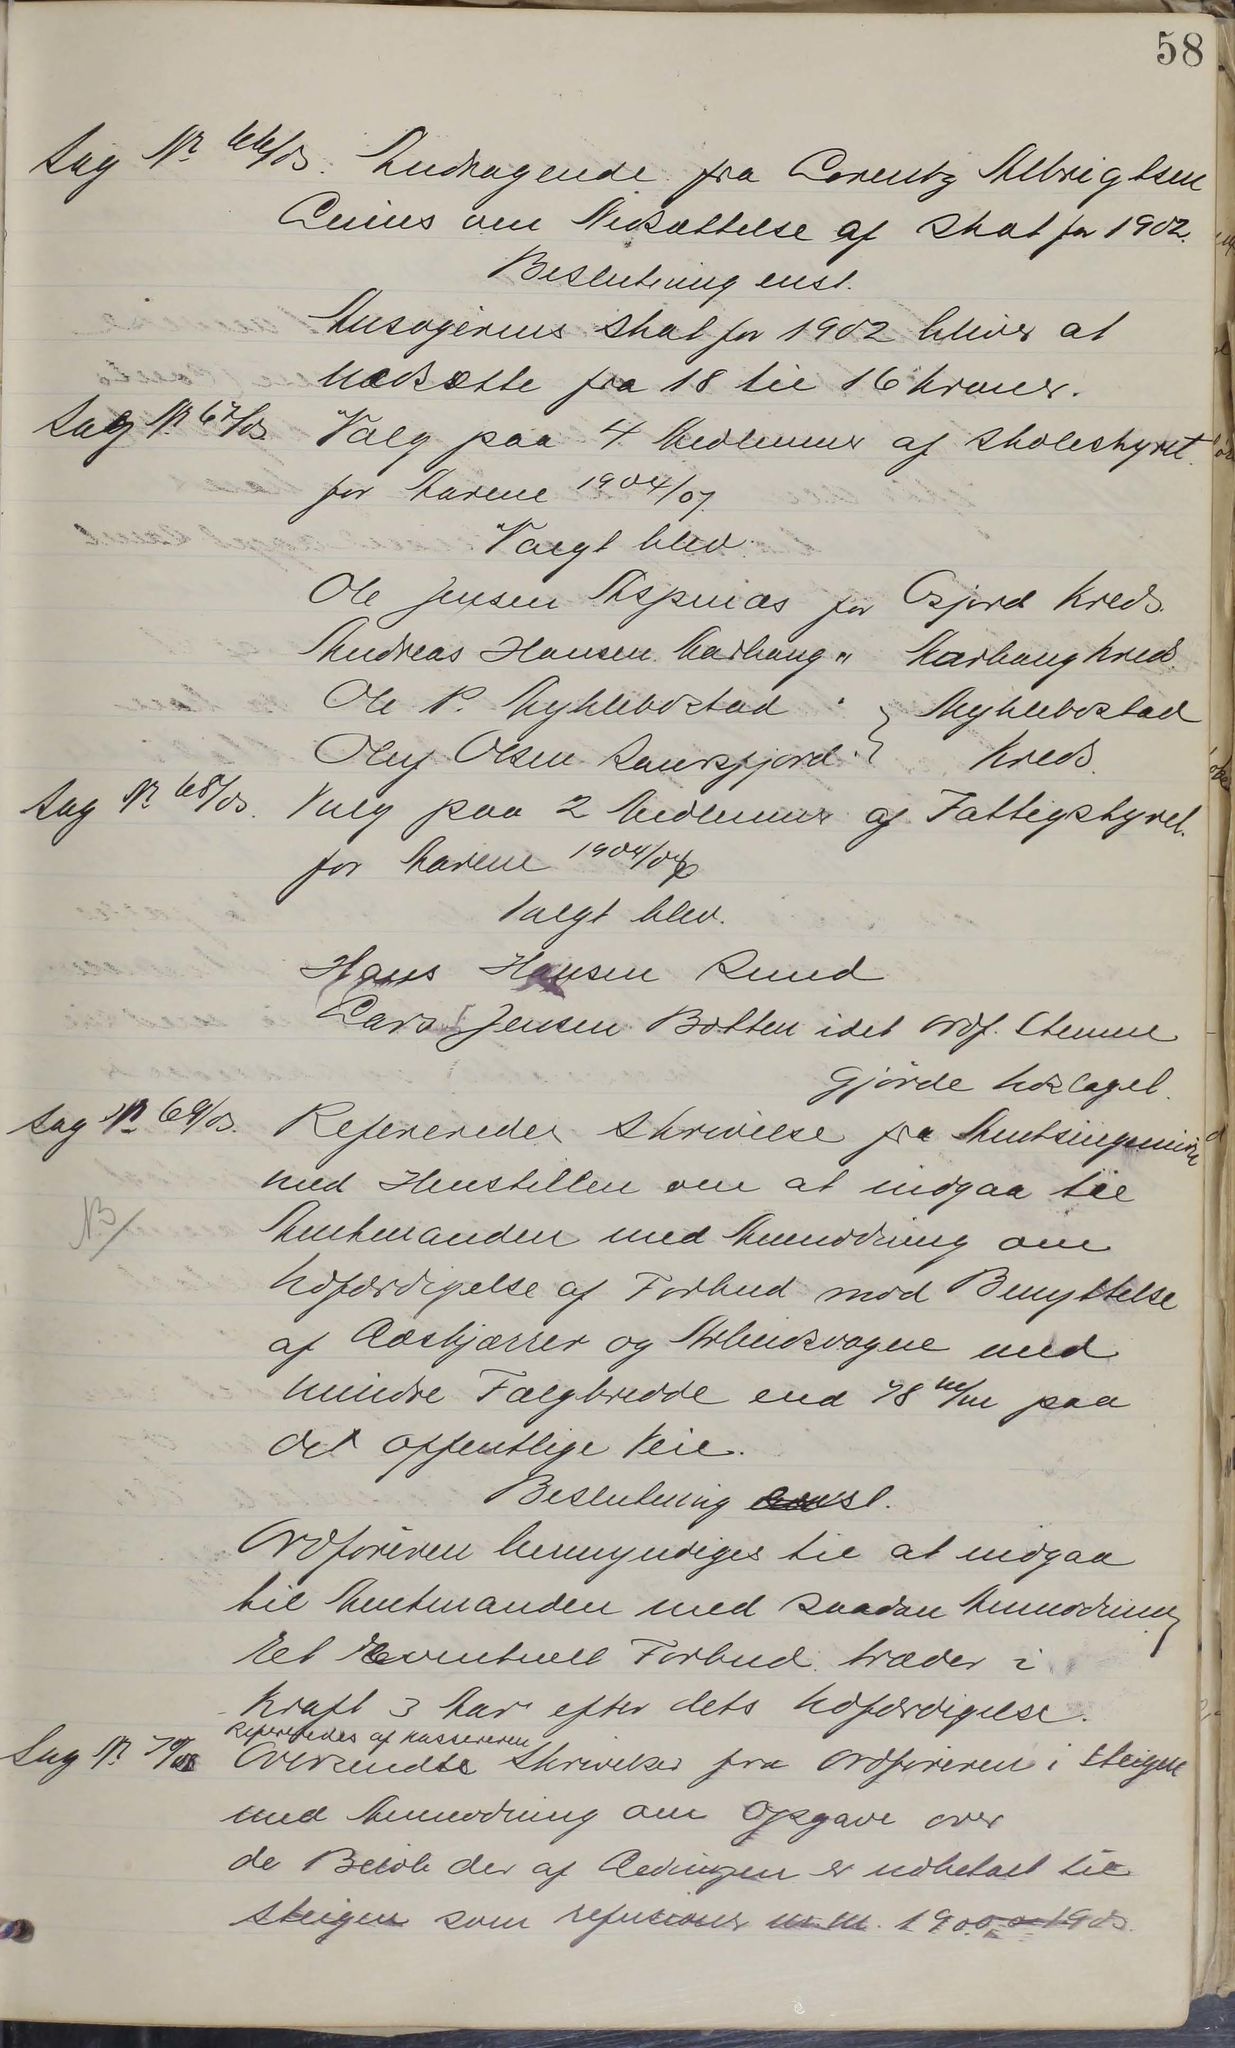 58
Sag Nr 66/03. Andragende fra Lorentz Albrigtsen
Leines om Nedsættelse af Skat for 1902.
Beslutning enst.
Ansøgerens Skat for 1902 bliver at
nedsætte fra 18 til 16 kroner.
Sag Nr 67/03 Valg paa 4 Medlemmer af Skolestyret
for Aarene 1904/07.
Valgt blev.
Ole Jensen Aspenæs for Osfjord Kreds.
Andreas Hansen Marhaug " Marhaug Kreds
Ole P. Myklebostad " } Myklebostad
Oluf Olsen Laursfjord " } Kreds.
Sag Nr 68/03. Valg paa 2 Medlemmer af Fattigstyret.
for Aarene 1904/06
Valgt blev.
Hans Hansen Rund
Lars Jensen Botten idet Ordf. Stemme
gjorde Udslaget.
Sag Nr 69/03. Refereredes Skrivelse fra Amtsingeniøren
med Henstillen om at indgaa til
NB/ Amtmanden med Anmodning om
Udfærdigelse af Forbud mod Benyttelse
af Læskjærrer og Arbeidsvogne med
mindre Fælgbredde end 78 m/m paa
det offentlige Veie.
Beslutning enst.
Ordføreren bemyndiges til at indgaa
til Amtmanden med saadan Anmodning
Et Eventuelt Forbud træder i
Kraft 3 Aar efter dets Udfærdigelse.
Refereredes af Kassereren
Sag Nr 70/03 Oversendte Skrivelser fra Ordføreren i Steigen
med Anmodning om Opgave over
de Beløb der af Ledingen er udbetalt til
Steigen som refusioner m.m. 1900 o 1903.